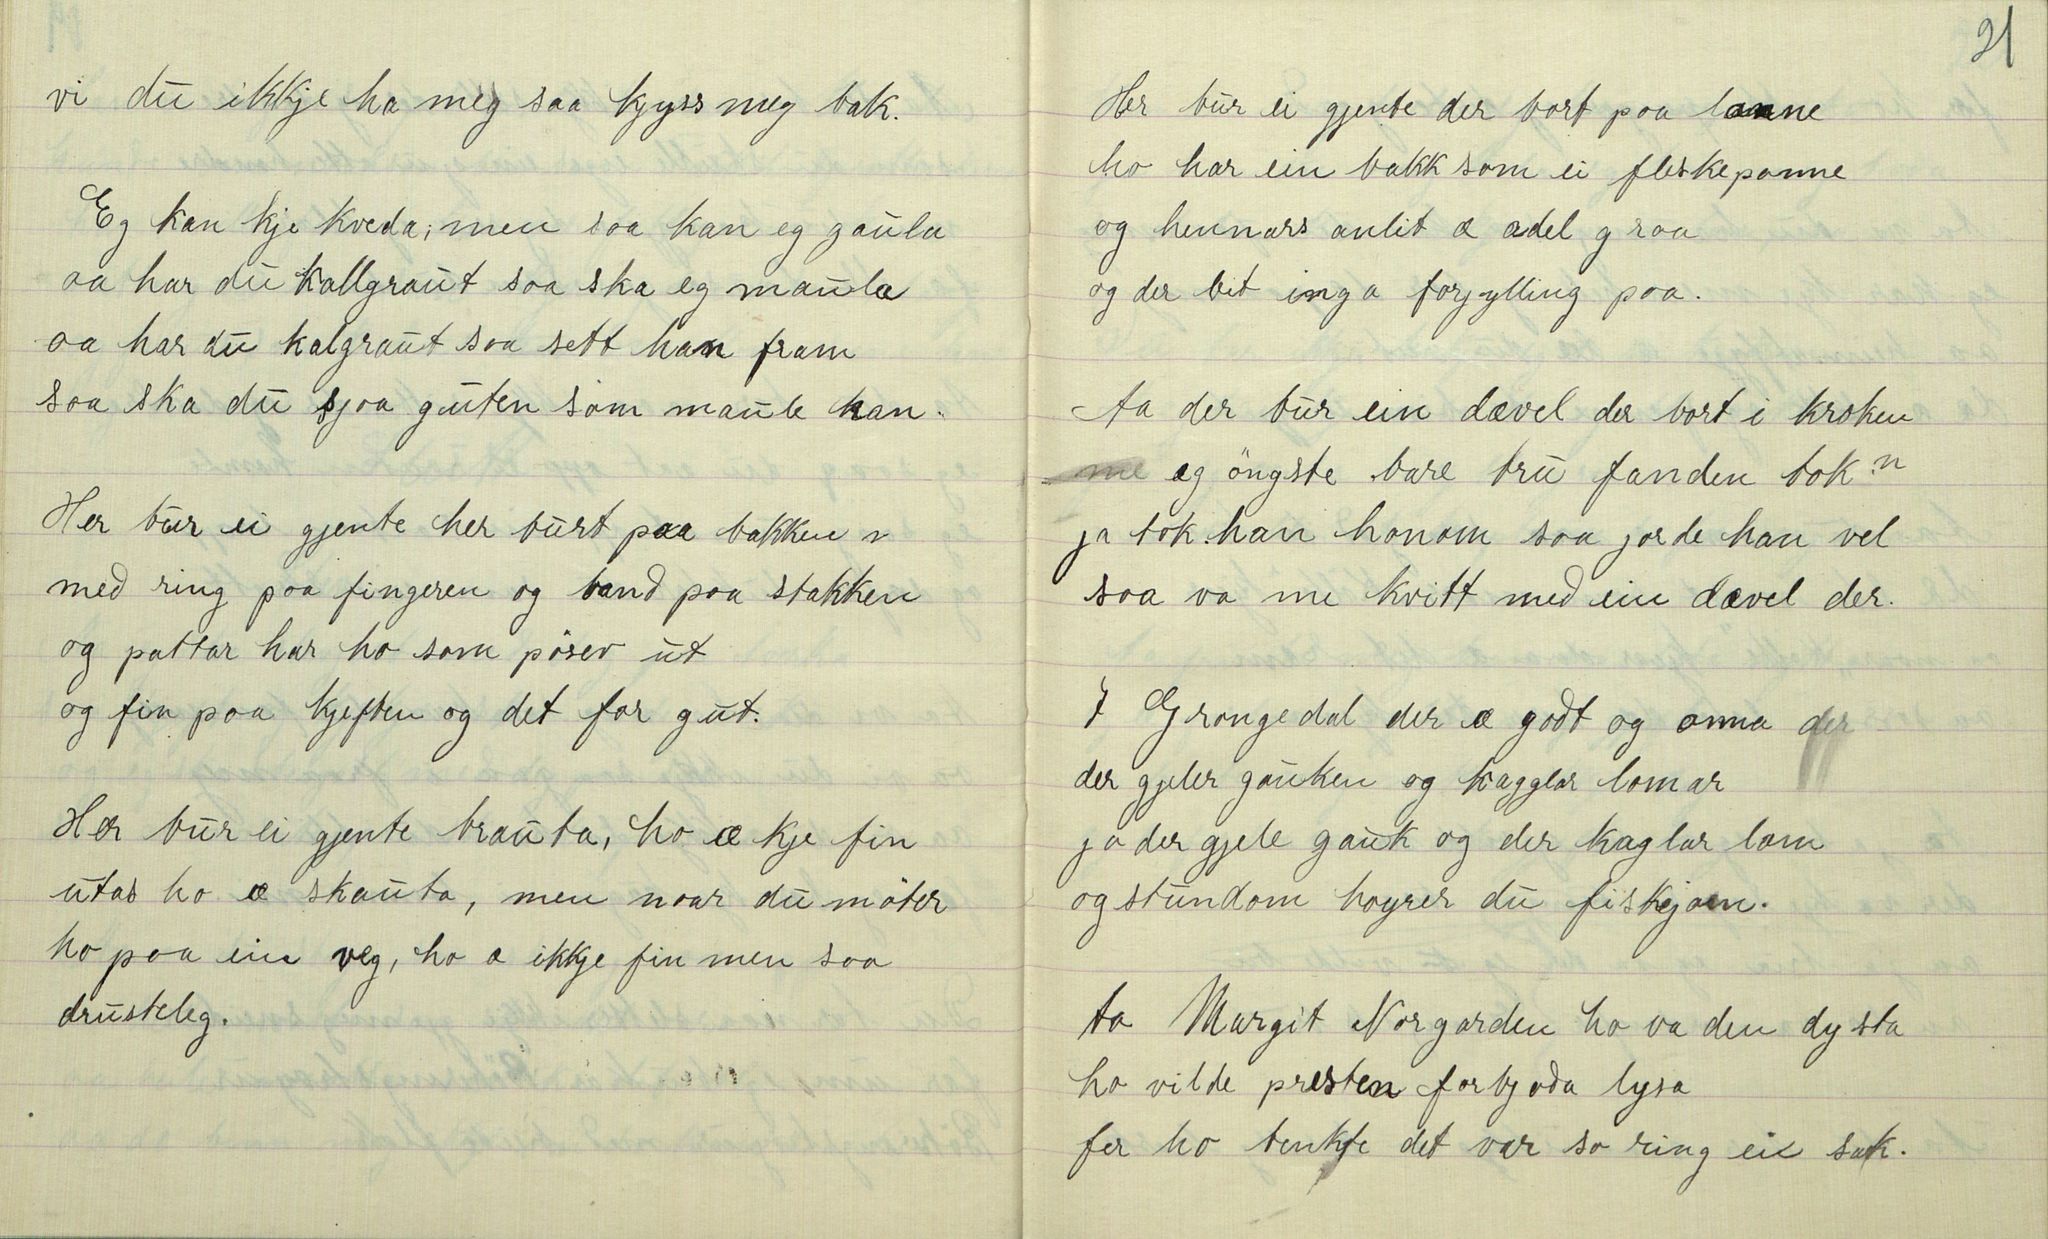 vi du ikkje ha meg saa kyss meg bak.
Eg kan kje kveda, men saa kan eg gaula
aa har du kallgraut saa ska eg maula
aa har du kalgraut saa sett han fram
saa ska du sjaa guten som maule han.
Her bur ei gjente her burt paa bakken
med ring paa fingeren og band paa stakken
og pattar har ho som pöser ut
og fin paa kjeften og det for gut.
Her bur ei gjente brauta, ho æ kje fin
utas ho æ skauta, men naar du möter
ho paa ein veg, ho æ ikkje fin men saa
drusteleg.
21
Her bur ei gjente der bort paa lanne
ho har ein bakk som ei fleskepanne
og hennars anlit æ adel graa
og der bit inga forjylling paa.
Aa der bur ein dævel der bort i kroken
me eg öngste bare tru fanden tok'n
ja tok han honom saa jorde han vel
saa va me kvitt med ein dævel der.
I Grongedal der æ godt og anna der
der gjeler gauken og kagglar lomar
ja der gjele gauk og der kaglar lom
og stundom høyrer du fiskjoen.
Aa Margit Norgarden ho va den dysta
ho vilde presten forbjoda lysa
fer ho tenkte det var so ring ei sak.